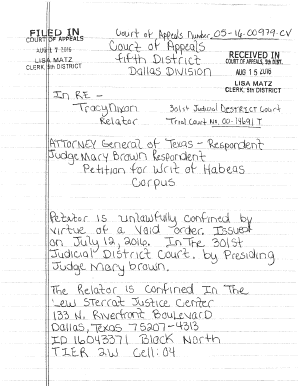 FILED IN
COURT OF APPEALS
AUG 17 2016
LISA MATZ
CLERK, 5th DISTRICT
Court of Appeals Number 05-16-00979-CV
Court of Appeals
fifth District
Dallas Division
RECEIVED IN
COURT OF APPEALS, 5th DIST.
AUG 15 2016
LISA MATZ
CLERK, 5th DISTRICT
In RE -
Tracy Dixon
Relator
301st Judicial DESTRICT Court
Trial Court No. 00-14691 T
ATTORNEY General of Texas - Respondent
Judge Mary Brown Respondent
Petition for Writ of Habeas
Corpus
is unlawfully confined by
virtue of a void order. Issued
on July 12, 2016. In The 301st
Judicial District Court. by Presiding
Judge Mary brown.
The Relator is confined In The
Lew Sterrat Justice Center
133 N. Riverfront BoulevarD
Dallas, Texas 75207-4313
ID 16043371 Block North
TIER 2W Cell: 04